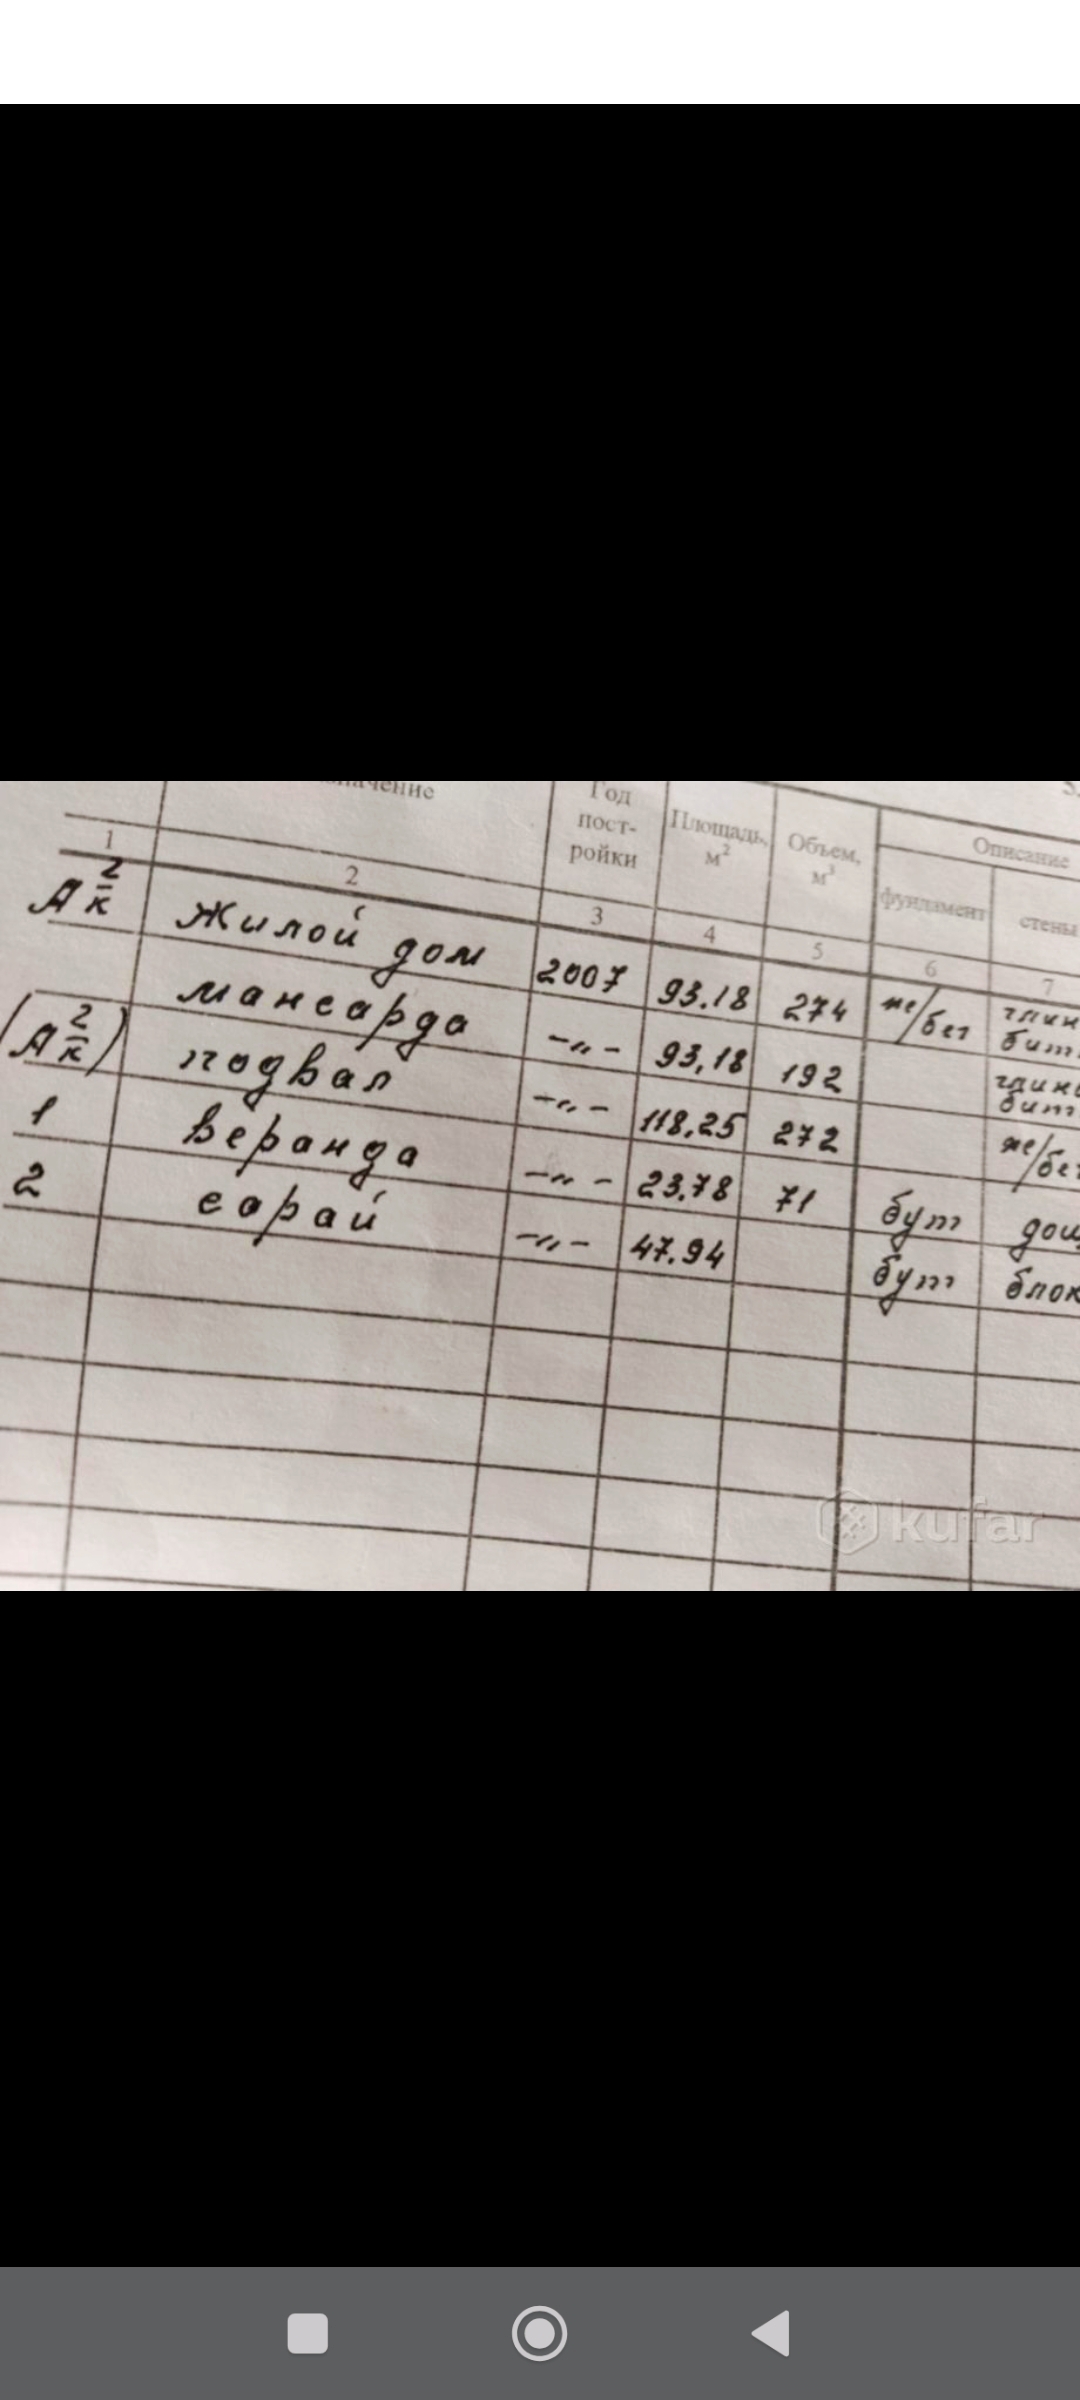 Год
пост-
ройки
Площадь,
м²
Объем,
м³
Описание
фундамент
стены
1 2 3 4 5 6 7
А 2/к жилой дом 2007 93.18 274 же/бет
мансарда -〃- 93,18 192
(А 2/к) подвал -〃- 118.25 272
1 веранда -〃- 23.78 71 бут
2 сарай -〃- 47.94 бут блок
kufar